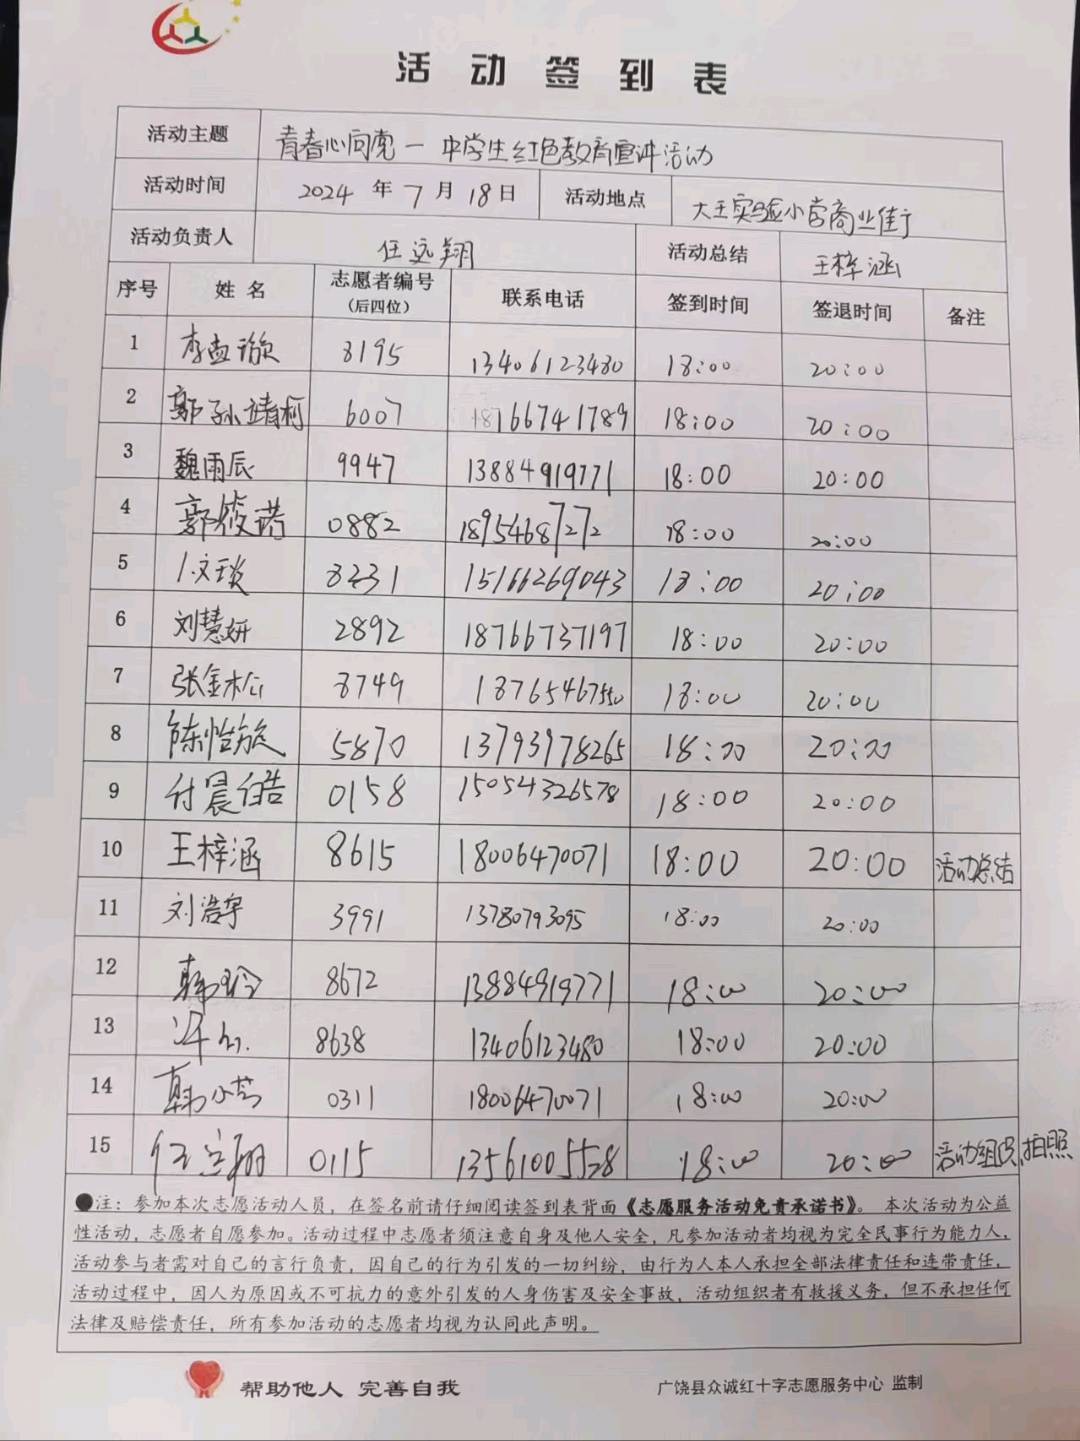 活动签到表
活动主题 青春心向党一中学生红色教育宣讲活动
活动时间 2024年7月18日 活动地点 大王实验小营商业街
活动负责人 任远翔 活动总结 王梓涵
序号 姓名 志愿者编号（后四位） 联系电话 签到时间 签退时间 备注
1 李孟 8195 13406123480 18:00 20:00
2 郭孙靖柯 6007 18766741789 18:00 20:00
3 魏雨辰 9947 13884919771 18:00 20:00
4 郭筱诺 0882 18954687272 18:00 20:00
5 文琰 8231 15166269043 18:00 20:00
6 刘慧妍 2892 18766737197 18:00 20:00
7 张金松 8749 18765467550 18:00 20:00
8 陈怡旋 5870 13793978265 18:00 20:00
9 付晨皓 0158 15054326578 18:00 20:00
10 王梓涵 8615 18006470071 18:00 20:00 活动总结
11 刘浩宇 3991 13780793095 18:00 20:00
12 韩玲 8672 13884919771 18:00 20:00
13 8638 13406123480 18:00 20:00
14 韩小芳 0311 18006470071 18:00 20:00
15 任远翔 0115 13561005528 18:00 20:00 活动组织,拍照
●注：参加本次志愿活动人员，在签名前请仔细阅读签到表背面《志愿服务活动免责承诺书》。本次活动为公益
性活动，志愿者自愿参加。活动过程中志愿者须注意自身及他人安全，凡参加活动者均视为完全民事行为能力人，
活动参与者需对自己的言行负责，因自己的行为引发的一切纠纷，由行为人本人承担全部法律责任和连带责任，
活动过程中，因人为原因或不可抗力的意外引发的人身伤害及安全事故，活动组织者有救援义务，但不承担任何
法律及赔偿责任，所有参加活动的志愿者均视为认同此声明。
帮助他人 完善自我 广饶县众诚红十字志愿服务中心 监制